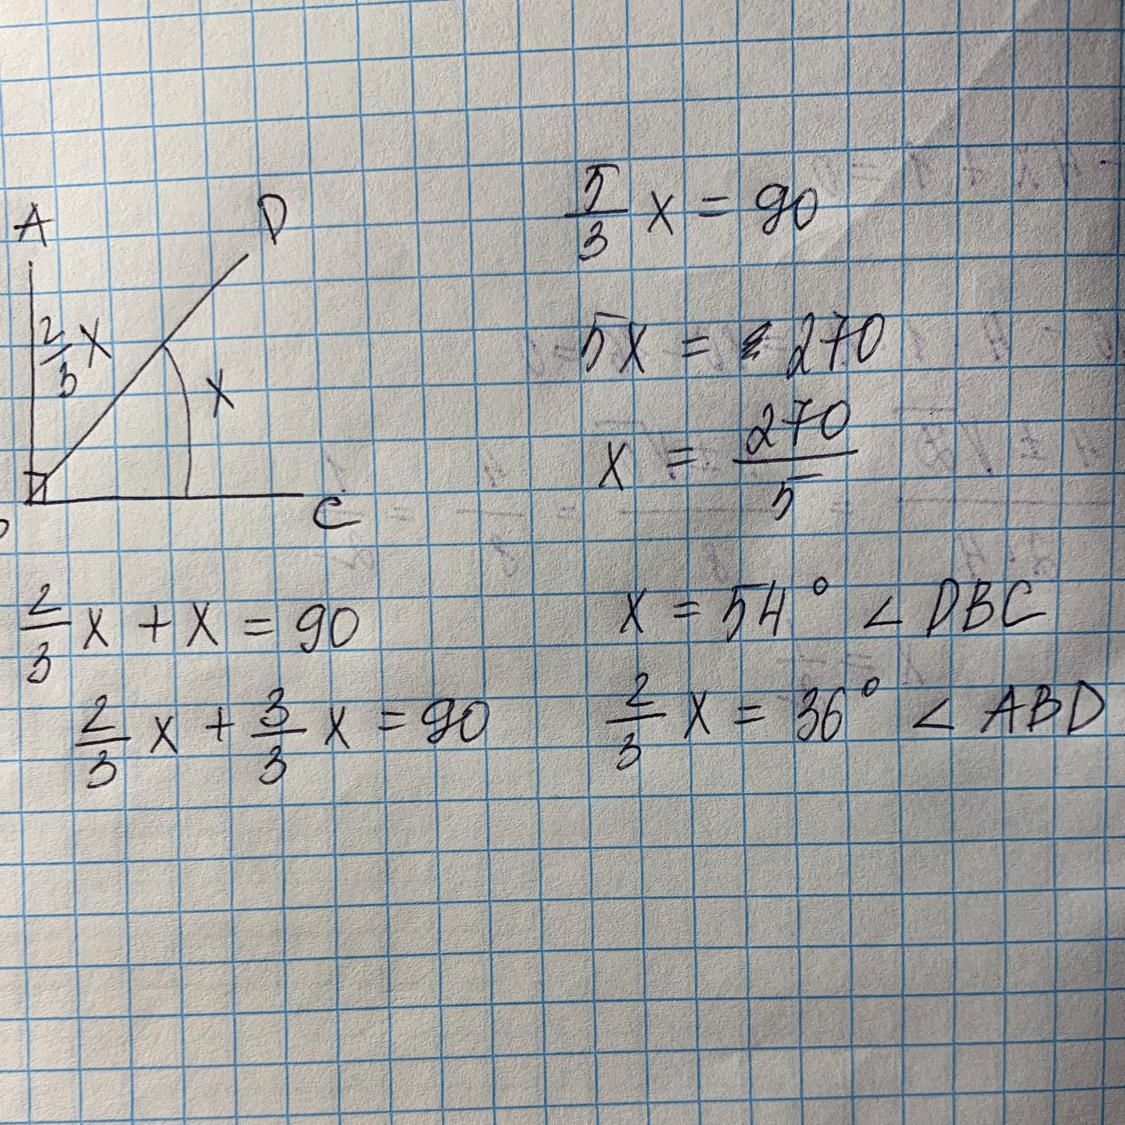 A
D
2/3 x
x
C
2/3 x + x = 90
2/3 x + 3/3 x = 90
5/3 x = 90
5x = 270
x = 270/5
x = 54° < DBC
2/3 x = 36° < ABD